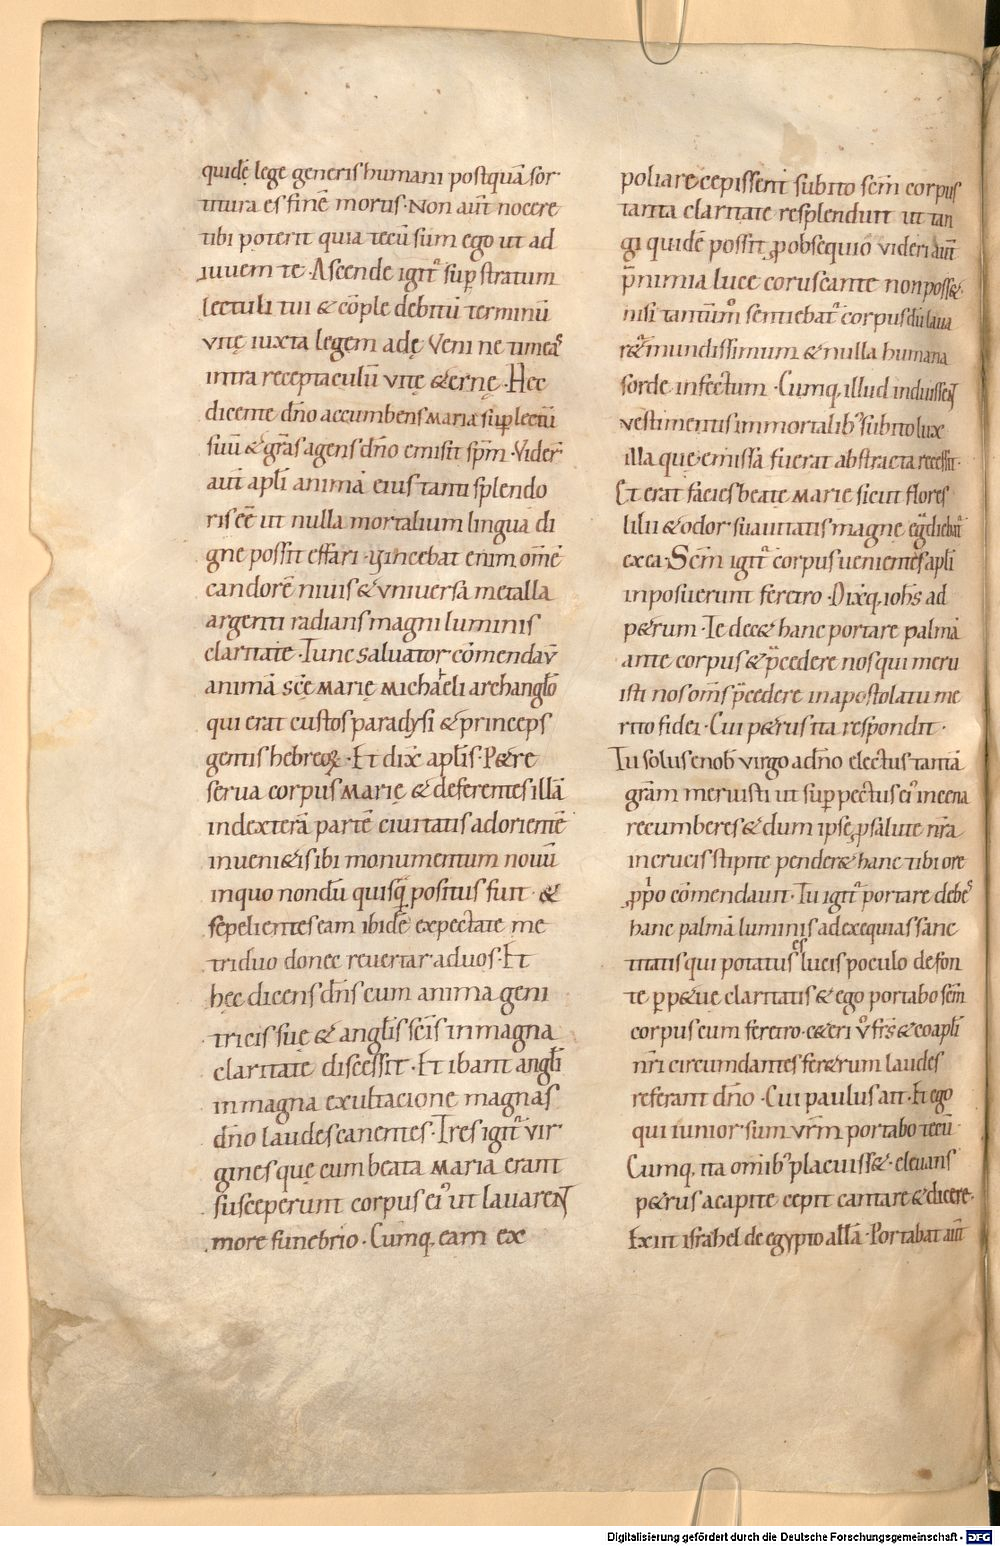 quidē lege generis humani postquā sor
titura es finē mortis · Non aut̄ nocere
tibi poterit quia tecū sum ego ut ad
iuuem te · Ascende igit᷑ sup̱ stratum
lectuli tui & cōple debitū terminū
vitę iuxta legem adę Veni ne timeas
intra receptaculū vitę &ernę · Hec
dicente dn̄o accumbens MARIA sup̱ lectū
suū & grās agens dn̄o emisit sp̄m · Vider̄
aut̄ apl̄i animā eius tanti splendo
ris eē ut nulla mortalium lingua di
gne possit effari · Vincebat enim om̄ē
candorē niuis & vniuersa metalla
argenti radians magni luminis
claritate · Tunc saluator cōmendaṽ
animā sc̄ę MARIĘ Michaeli archangl̄o
qui erat custos paradysi & princeps
gentis hebreoꝝ · Et dix̄ apl̄is · P&re
serua corpus MARIĘ & deferentes illā
in dexterā partē ciuitatis ad orientē
inueni&is ibi monumentum nouū
in quo nondū quisq̄ positus fuit · &
sepelientes eam ibidē expectate me
triduo donec reuertar ad uos · Et
hęc dicens dn̄s cum anima geni
tricis suę & angl̄is sc̄is in magna
claritate discessit · Et ibant angl̄i
in magna exultacione magnas
dn̄o laudes canentes · Tres igit᷑ vir
gines que cum beata MARIA erant
susceperunt corpus ei᷒ ut lauarenT
more funebrio · Cumq; eam ex
poliare cepissent subito sc̄m corpus
tanta claritate resplenduit ut tan
gi quidē possit ꝓ obsequio videri aut̄
p̄ nimia luce coruscante non poss&
nisi tantūmͦ sentiebat᷑ corpus dū laua
r&᷑ mundissimum & nulla humana
sorde infectum · Cumq; illud induissenT
vestimentis immortalib᷒ subito lux
illa que emissa fuerat abstracta recessit ·
Et erat facies beate MARIE sicut flores
lilii & odor suauitatis magne egrediebat᷑
ex ea · Sc̄m igit᷑ corpus uenientes apl̄i
inposuerunt feretro · Dixq; ioh̄s ad
p&rum · Te dec& hanc portare palmā
ante corpus & p̄cedere nos qui meru
isti nos om̄s p̄cedere in apostolatu me
rito fidei · Cui p&rus ita respondit ·
Tu solus e nob̄ virgo a dn̄o electus tantā
grām meruisti ut sup̱ pectus ei᷒ in cena
recumberes & dum ipse ꝓ salute nr̄a
in crucis stipite pender& hanc tibi ore
ꝓp̍o cōmendauit · Tu igit᷑ portare debes
hanc palmā luminis ad exequias sanc
titatis qui potatus es lucis poculo de fon
te p̱p&ue claritatis & ego portabo sc̄m
corpus cum feretro · c&eri vͦ fr̄s & coapl̄i
nr̄i circumdantes fer&rum laudes
referant dn̄o · Cui paulus ait · Et ego
qui iunior sum vr̄m portabo tecū ·
Cumq; ita omib᷒ placuiss& · eleuans
p&rus a capite cepit cantare & dicere ·
Exiit israhel de egypto all̄a · Portabat aut̄
Digitalisierung gefördert durch die Deutsche Forschungsgemeinschaft - DFG